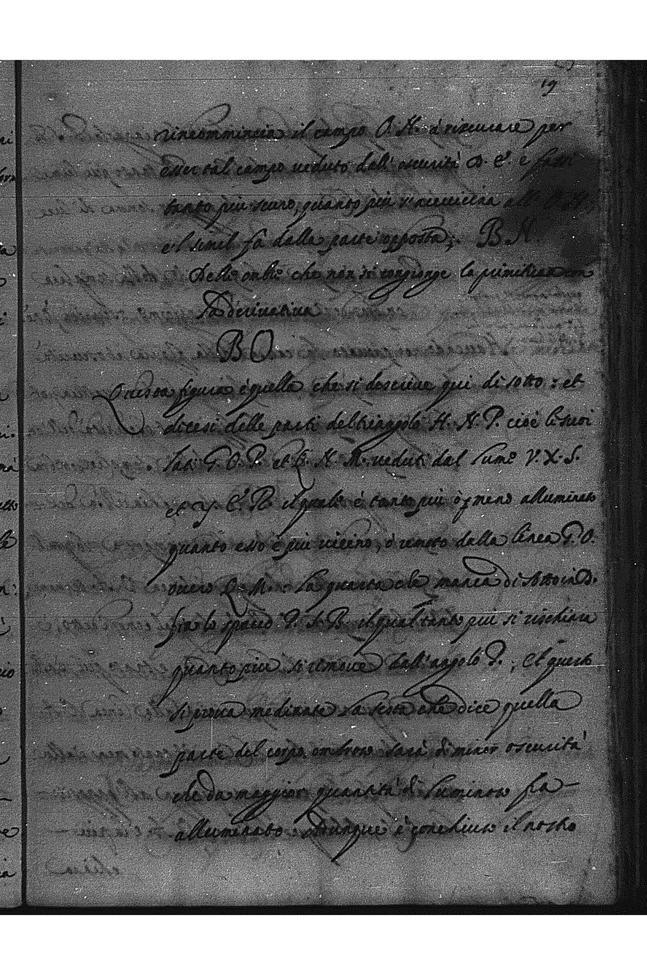 19
rincommincia il campo O. H. à riscurare per
esser tal campo veduto dall'oscurità D. E. e farsi
tanto più scuro, quanto più s'avvicina all' O. H.
el simil fà dalla parte opposta;. B N.
Dell' ombr. che non si congionge la primitiva con
la derivativa
B O
Questa figura è quella che si descrive qui di sotto: et
dicesi delle parti del triangolo H. N. P. cioè li suoi
lati G. O. P. et H. M. veduti dal lum. V. X. S.
et Y. R il qual' è tanto più ò meno alluminato
quanto esso è più vicino, ò remoto dalla linea G. O.
overo Q. M. La quarta che manca di sotto in D.
fia lo spacio P. S. R. il qual tanto più si rischiara
quanto più si remove dall' angolo P., el questo
si prova mediante la sesta che dice quella
parte del corpo ombroso sarà di minor oscurità
che da maggior quantità di luminoso fia
alluminato adunque è conchiuso il nostro